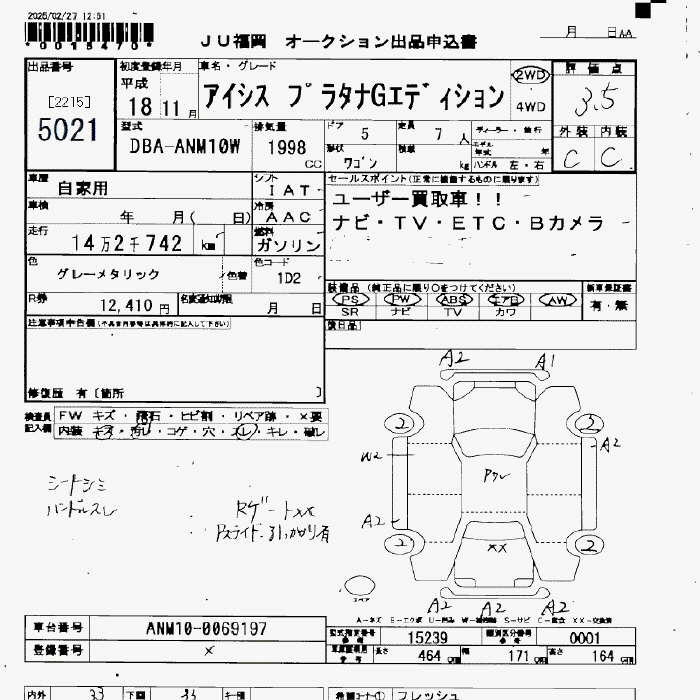 2025/02/27 12:51
*0015470*
JU福岡 オークション出品申込書
月 日 AA
出品番号
[2215]
5021
初度登録年月
平成
18 11 月
車名・グレード
アイシス プラタナGエディション
2WD
4WD
評価点
3.5
外装 内装
C C
型式
DBA-ANM10W
排気量
1998
CC
ドア 5
定員 7 人
形状 ワゴン
積載 kg
ディーラー・並行
モデル年式 年
ハンドル 左・右
車歴
自家用
シフト
IAT
車検
年 月( 日)
冷房
AAC
走行
14万2千742 km
燃料
ガソリン
色
グレーメタリック
色替
色コード
1D2
R券
12,410 円
名変通知期限
月 日
セールスポイント(正常に機能するものに限ります)
ユーザー買取車!!
ナビ・TV・ETC・Bカメラ
装備品 (純正品に限り○をつけてください)
PS PW ABS エアB AW
SR ナビ TV カワ
新車保証書
有・無
後日品
注意事項申告欄
修復歴 有〔箇所 〕
検査員記入欄
FW キズ・飛石・ヒビ割・リペア跡・×要
内装 キズ・汚れ・コゲ・穴・スレ・キレ・破レ
シートシミ
ハンドルスレ
Rゲートxx
Pスライド引っかかり有
A2 A1
2 2
A2
W2
Pクレ
A2
2 2
xx
A2 A2 A2
スペア
A-キズ E-エクボ U-凹み W-補修跡 S-サビ C-腐食 XX-交換済
車台番号 ANM10-0069197
登録番号 ×
型式指定番号 15239 類別区分番号 0001
長さ 464 cm 幅 171 cm 高さ 164 cm
内外 33 下廻 33 キー類
希望コーナー① フレッシュ